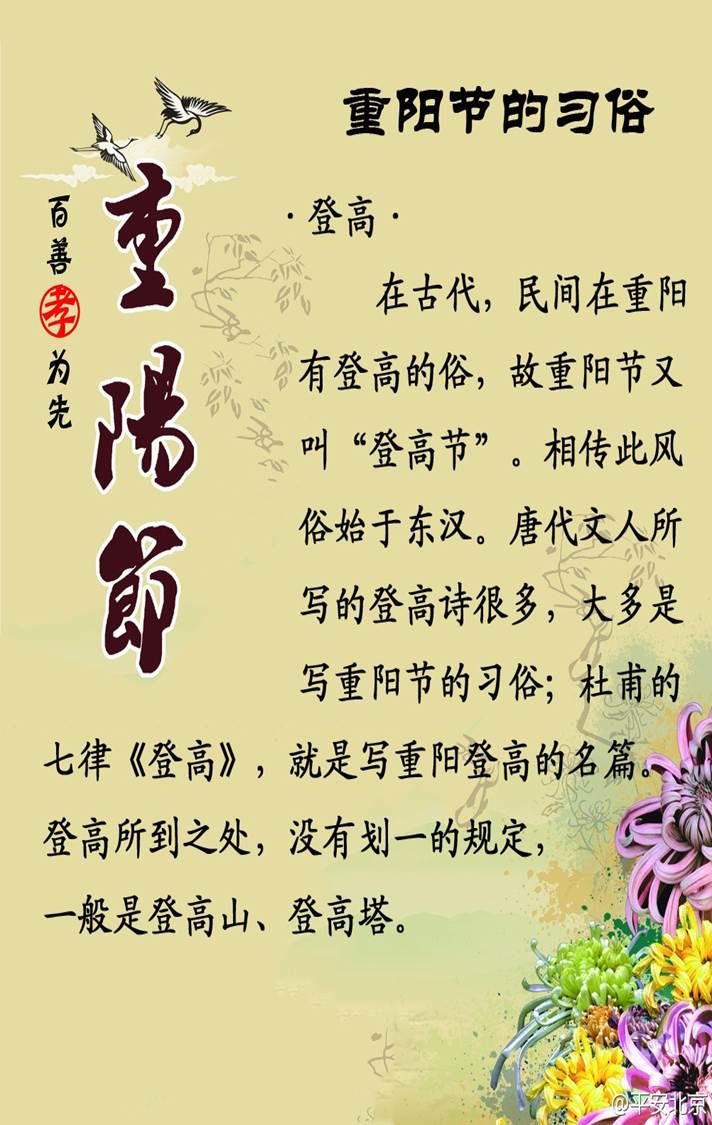 重阳节的习俗
百善孝为先
重陽節
·登高·
在古代，民间在重阳
有登高的俗，故重阳节又
叫“登高节”。相传此风
俗始于东汉。唐代文人所
写的登高诗很多，大多是
写重阳节的习俗；杜甫的
七律《登高》，就是写重阳登高的名篇。
登高所到之处，没有划一的规定，
一般是登高山、登高塔。
@平安北京